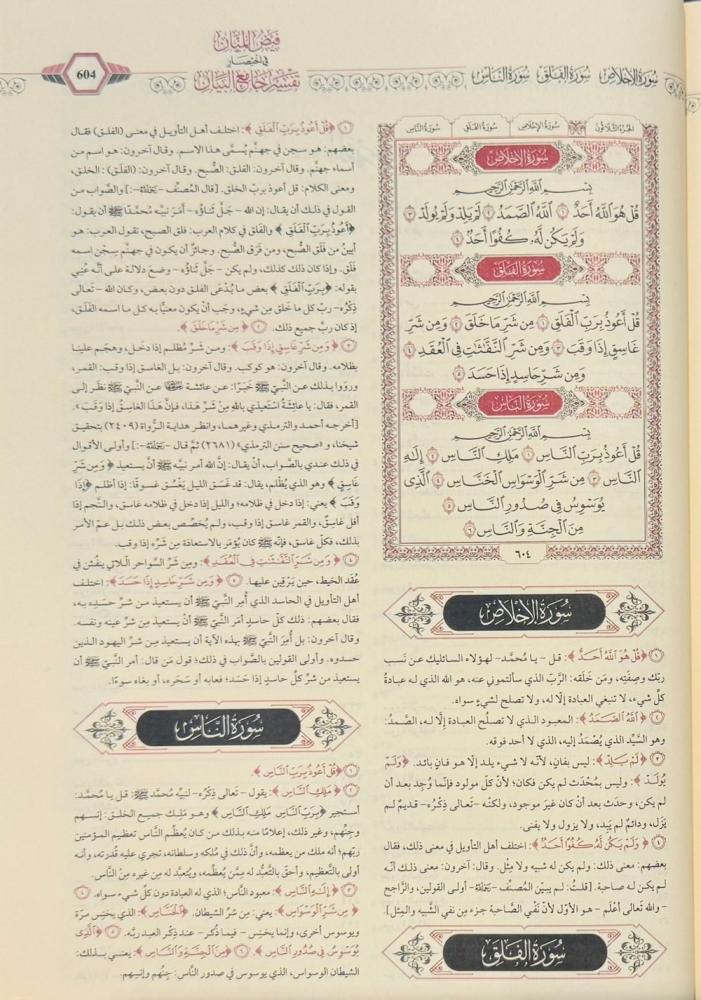 فيض المنان
في اختصار
تفسير جامع البيان
604
سورة الإخلاص سورة الفلق سورة الناس
الجزء الثلاثون
سورة الإخلاص
سورة الفلق
سورة الناس
سورة الإخلاص
بسم الله الرحمن الرحيم
قُلْ هُوَ اللَّهُ أَحَدٌ ١ اللَّهُ الصَّمَدُ ٢ لَمْ يَلِدْ وَلَمْ يُولَدْ ٣
وَلَمْ يَكُن لَّهُ كُفُوًا أَحَدٌ ٤
سورة الفلق
بسم الله الرحمن الرحيم
قُلْ أَعُوذُ بِرَبِّ الْفَلَقِ ١ مِن شَرِّ مَا خَلَقَ ٢ وَمِن شَرِّ
غَاسِقٍ إِذَا وَقَبَ ٣ وَمِن شَرِّ النَّفَّاثَاتِ فِي الْعُقَدِ ٤
وَمِن شَرِّ حَاسِدٍ إِذَا حَسَدَ ٥
سورة الناس
بسم الله الرحمن الرحيم
قُلْ أَعُوذُ بِرَبِّ النَّاسِ ١ مَلِكِ النَّاسِ ٢ إِلَهِ
النَّاسِ ٣ مِن شَرِّ الْوَسْوَاسِ الْخَنَّاسِ ٤ الَّذِي
يُوَسْوِسُ فِي صُدُورِ النَّاسِ ٥
مِنَ الْجِنَّةِ وَالنَّاسِ ٦
٦٠٤
سورة الإخلاص
١ ﴿قُلْ هُوَ اللَّهُ أَحَدٌ﴾: قل - يا محمَّد- لهؤلاء السائليك عن نَسب
ربِّك وصِفَتِه، ومَن خَلَقه: الرَّبّ الذي سألتموني عنه، هو الله الذي له عبادةُ
كلّ شيء، لا تنبغي العبادة إلَّا له، ولا تصلح لشيءٍ سواه.
٢ ﴿اللَّهُ الصَّمَدُ﴾: المعبود الذي لا تصلُح العبادة إلَّا له، الصَّمدُ:
وهو السَّيِّد الذي يُصْمَدُ إليه، الذي لا أحد فوقه.
٣ ﴿لَمْ يَلِدْ﴾: ليس بفانٍ، لأنَّه لا شيء يلد إلَّا هو فانٍ بائد. ﴿وَلَمْ
يُولَدْ﴾: وليس بمُحْدَث لم يكن فكان؛ لأنَّ كلّ مولود فإنَّما وُجِد بعد أن
لم يكن، وحدَث بعد أنْ كان غيرَ موجود، ولكنَّه -تعالى ذِكْرُه- قديمٌ لم
يَزل، ودائمٌ لم يَبِد، ولا يزول ولا يفنى.
٤ ﴿وَلَمْ يَكُن لَّهُ كُفُوًا أَحَدٌ﴾: اختلف أهل التأويل في معنى ذلك، فقال
بعضهم: معنى ذلك: ولم يكن له شبيه ولا مِثْل. وقال: آخرون: معنى ذلك أنَّه
لم يكن له صاحبة. [قلتُ: لم يبيّن المصنّف أولى القولين، والراجح
- والله تعالى أعْلَم - هو الأوّل لأنّ نَفْي الصَّاحبة جزء مِن نفي الشَّبيه والمِثل].
سورة الفلق
١ ﴿قُلْ أَعُوذُ بِرَبِّ الْفَلَقِ﴾: اختلف أهل التأويل في معنى (الفلق) فقال
بعضهم: هو سجن في جهنَّم يُسمَّى هذا الاسم. وقال آخرون: هو اسم من
أسماء جهنَّم. وقال آخرون: الفلق: الصُّبح. وقال آخرون: (الفَلَق) : الخلق،
ومعنى الكلام: قل أعوذ بربِّ الخلق. [قال المصنّف :] والصَّواب من
القول في ذلك أن يقال: إن الله - جَلَّ ثَنَاؤُه - أمَر نبيَّه محمَّدًا ﷺ أن يقول:
﴿أَعُوذُ بِرَبِّ الْفَلَقِ﴾ والفلق في كلام العرب: فلق الصبح، تقول العرب: هو
أبينُ من فَلَق الصُّبح، ومن فَرَق الصُّبح. وجائزٌ أن يكون في جهنَّم سِجْن اسمه
فَلَق. وإذا كان ذلك كذلك، ولم يكن - جَلَّ ثَنَاؤُه - وضعَ دلالة على أنَّه عُنِي
بقوله: ﴿بِرَبِّ الْفَلَقِ﴾ بعض ما يُدْعَى الفلق دون بعض، وكان الله - تعالى
ذِكْرُه- ربّ كل ما خلق مِن شيءٍ، وجَب أنْ يكون معنيًّا به كل ما اسمه الفَلَق،
إذ كان ربّ جميع ذلك. ٢ ﴿مِن شَرِّ مَا خَلَقَ﴾.
٣ ﴿وَمِن شَرِّ غَاسِقٍ إِذَا وَقَبَ﴾: ومن شرِّ مُظلم إذا دخل، وهجَم علينا
بظلامه. وقال آخرون: هو كوكب. وقال آخرون: بل الغاسق إذا وقب: القمر،
ورووا بذلك عن النَّبيّ ﷺ خبرًا: عن عائشة عن النَّبيّ ﷺ نظر إلى
القمر، فقال: يا عائشةُ استَعيذي باللهِ مِنْ شَرِّ هَذا، فإنَّ هَذا الغاسِقُ إذا وَقَبَ».
[أخرجه أحمد والترمذي وغيرهما، وانظر هداية الرُّواة (٢٤٠٩) بتحقيق
شيخنا، و«صحيح سنن الترمذي» (٢٦٨١) ثمَّ قال :] وأولى الأقوال
في ذلك عندي بالصَّواب، أنْ يقال: إنَّ الله أمر نبيَّه ﷺ أنْ يستعيذ ﴿وَمِن شَرِّ
غَاسِقٍ﴾ وهو الذي يُظلم، يقال: قد غسَق الليل يَغْسُق غسوقًا: إذا أظلم ﴿إِذَا
وَقَبَ﴾ يعني: إذا دخل في ظلامه؛ والليل إذا دخل في ظلامه غاسق، والنَّجم إذا
أفل غاسِقٌ، والقمر غاسق إذا وقب، ولم يُخصّص بعض ذلك بل عمّ الأمر
بذلك، فكلّ غاسق، فإنَّه ﷺ كان يُؤمَر بالاستعاذة مِن شرِّه إذا وقب.
٤ ﴿وَمِن شَرِّ النَّفَّاثَاتِ فِي الْعُقَدِ﴾: ومِن شَرِّ السواحر اللَّاتي ينفُثن في
عُقَد الخيط، حين يَرْقِين عليها. ٥ ﴿وَمِن شَرِّ حَاسِدٍ إِذَا حَسَدَ﴾: اختلف
أهل التأويل في الحاسد الذي أُمِر النَّبيّ ﷺ أن يستعيذ مِن شرِّ حَسَدِه به،
فقال بعضهم: ذلك كلّ حاسدٍ أمَر النَّبيّ ﷺ أن يستعيذ مِن شرِّ عينه ونفسه.
وقال آخرون: بل أُمِرَ النَّبيّ ﷺ بهذه الآية أن يستعيذ مِن شرِّ اليهود الذين
حسدوه. وأولى القولين بالصَّواب في ذلك؛ قول مَن قال: أمر النَّبيّ ﷺ أن
يستعيذ من شرِّ كلِّ حاسدٍ إذا حَسَد؛ فعابه أو سَحَره، أو بغاه سوءًا.
سورة الناس
١ ﴿قُلْ أَعُوذُ بِرَبِّ النَّاسِ﴾.
٢ ﴿مَلِكِ النَّاسِ﴾: يقول -تعالى ذِكْرُه- لنبيِّه مُحمَّدٍ ﷺ: قل يا مُحمَّد:
أستجير ﴿بِرَبِّ النَّاسِ مَلِكِ النَّاسِ﴾ وهو مَلِك جميع الخلق: إنسهم
وجِنِّهم، وغير ذلك، إعلامًا منه بذلك من كان يُعظِّم النَّاس تعظيم المؤمنين
ربّهم؛ أنه ملك من يعظمه، وأنَّ ذلك في مُلكه وسلطانه، تجري عليه قُدرته، وأنه
أولى بالتَّعظيم، وأحقّ بالتَّعبُّد له ممَّن يُعظِّمه، ويُتعبَّد له مِن غيره مِنَ النَّاس.
٣ ﴿إِلَهِ النَّاسِ﴾: معبود النَّاس؛ الذي له العبادة دون كلِّ شيء سواه. ٤
﴿مِن شَرِّ الْوَسْوَاسِ﴾: يعني: مِن شرِّ الشيطان. ﴿الْخَنَّاسِ﴾: الذي يخنِس مرّة
ويوسوس أخرى، وإنما يخنِس - فيما ذُكر - عند ذِكر العبد ربَّه. ٥ ﴿الَّذِي
يُوَسْوِسُ فِي صُدُورِ النَّاسِ﴾. ٦ ﴿مِنَ الْجِنَّةِ وَالنَّاسِ﴾: يعني بذلك:
الشيطان الوسواس، الذي يوسوس في صدور النَّاس: جِنِّهم وإنسِهم.